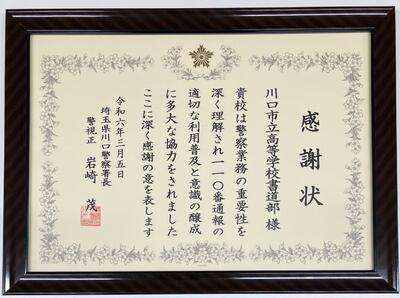 感謝状
川口市立高等学校書道部 様
貴校は警察業務の重要性を
深く理解され一一〇番通報の
適切な利用普及と意識の醸成
に多大な協力をされました
ここに深く感謝の意を表します
令和六年三月五日
埼玉県川口警察署長
警視正 岩崎 茂